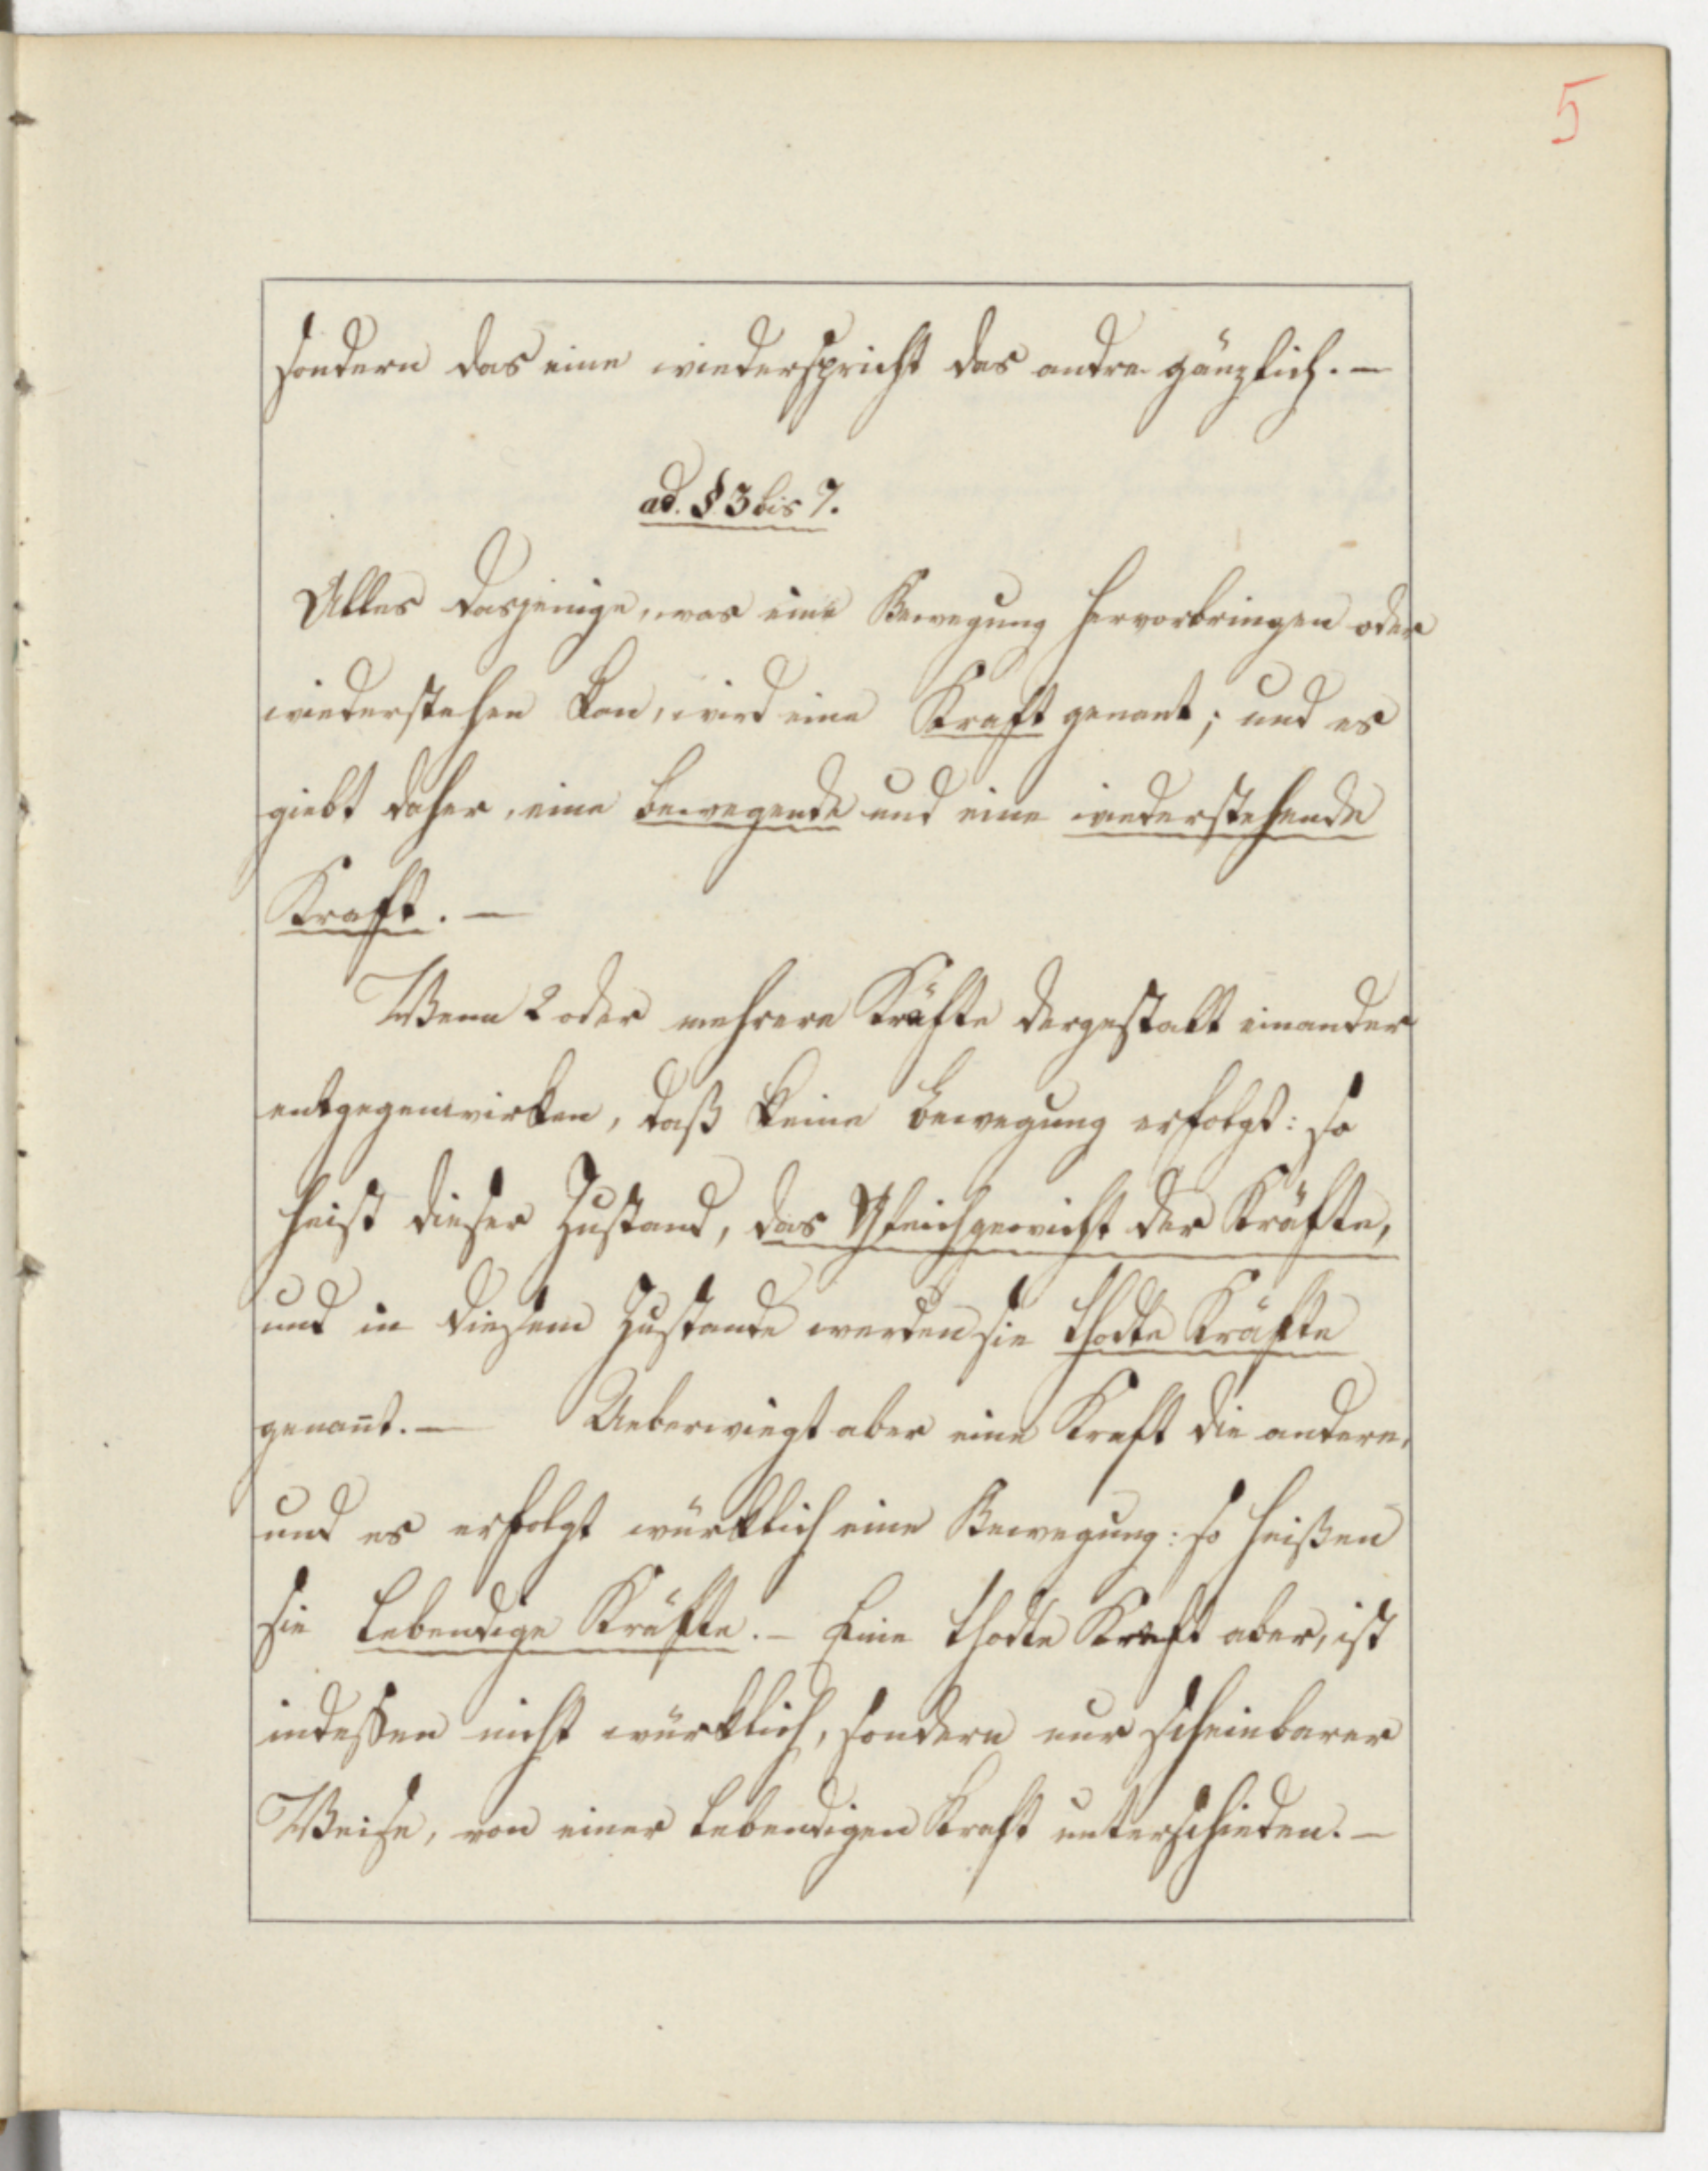 5
sondern das eine wiederspricht das andre gänzlich. —
ad. § 3 bis 7.
Alles dasjenige, was eine Bewegung hervorbringen oder
wiederstehen kan, wird eine Kraft genant; und es
giebt daher, eine bewegende und eine wiederstehende
Kraft. —
Wenn 2 oder mehrere Kräfte dergestalt einander
entgegenwirken, daß keine Bewegung erfolgt: so
heist dieser Zustand, das Gleichgewicht der Kräfte,
und in diesem Zustande werden sie thodte Kräfte
genan̄t. — Ueberwiegt aber eine Kraft die andere,
und es erfolgt würklich eine Bewegung: so heißen
sie lebendige Kräfte. — Eine thodte Kraft aber, ist
indessen nicht würklich, sondern nur scheinbarer
Weise, von einer lebendigen Kraft unterschieden. —